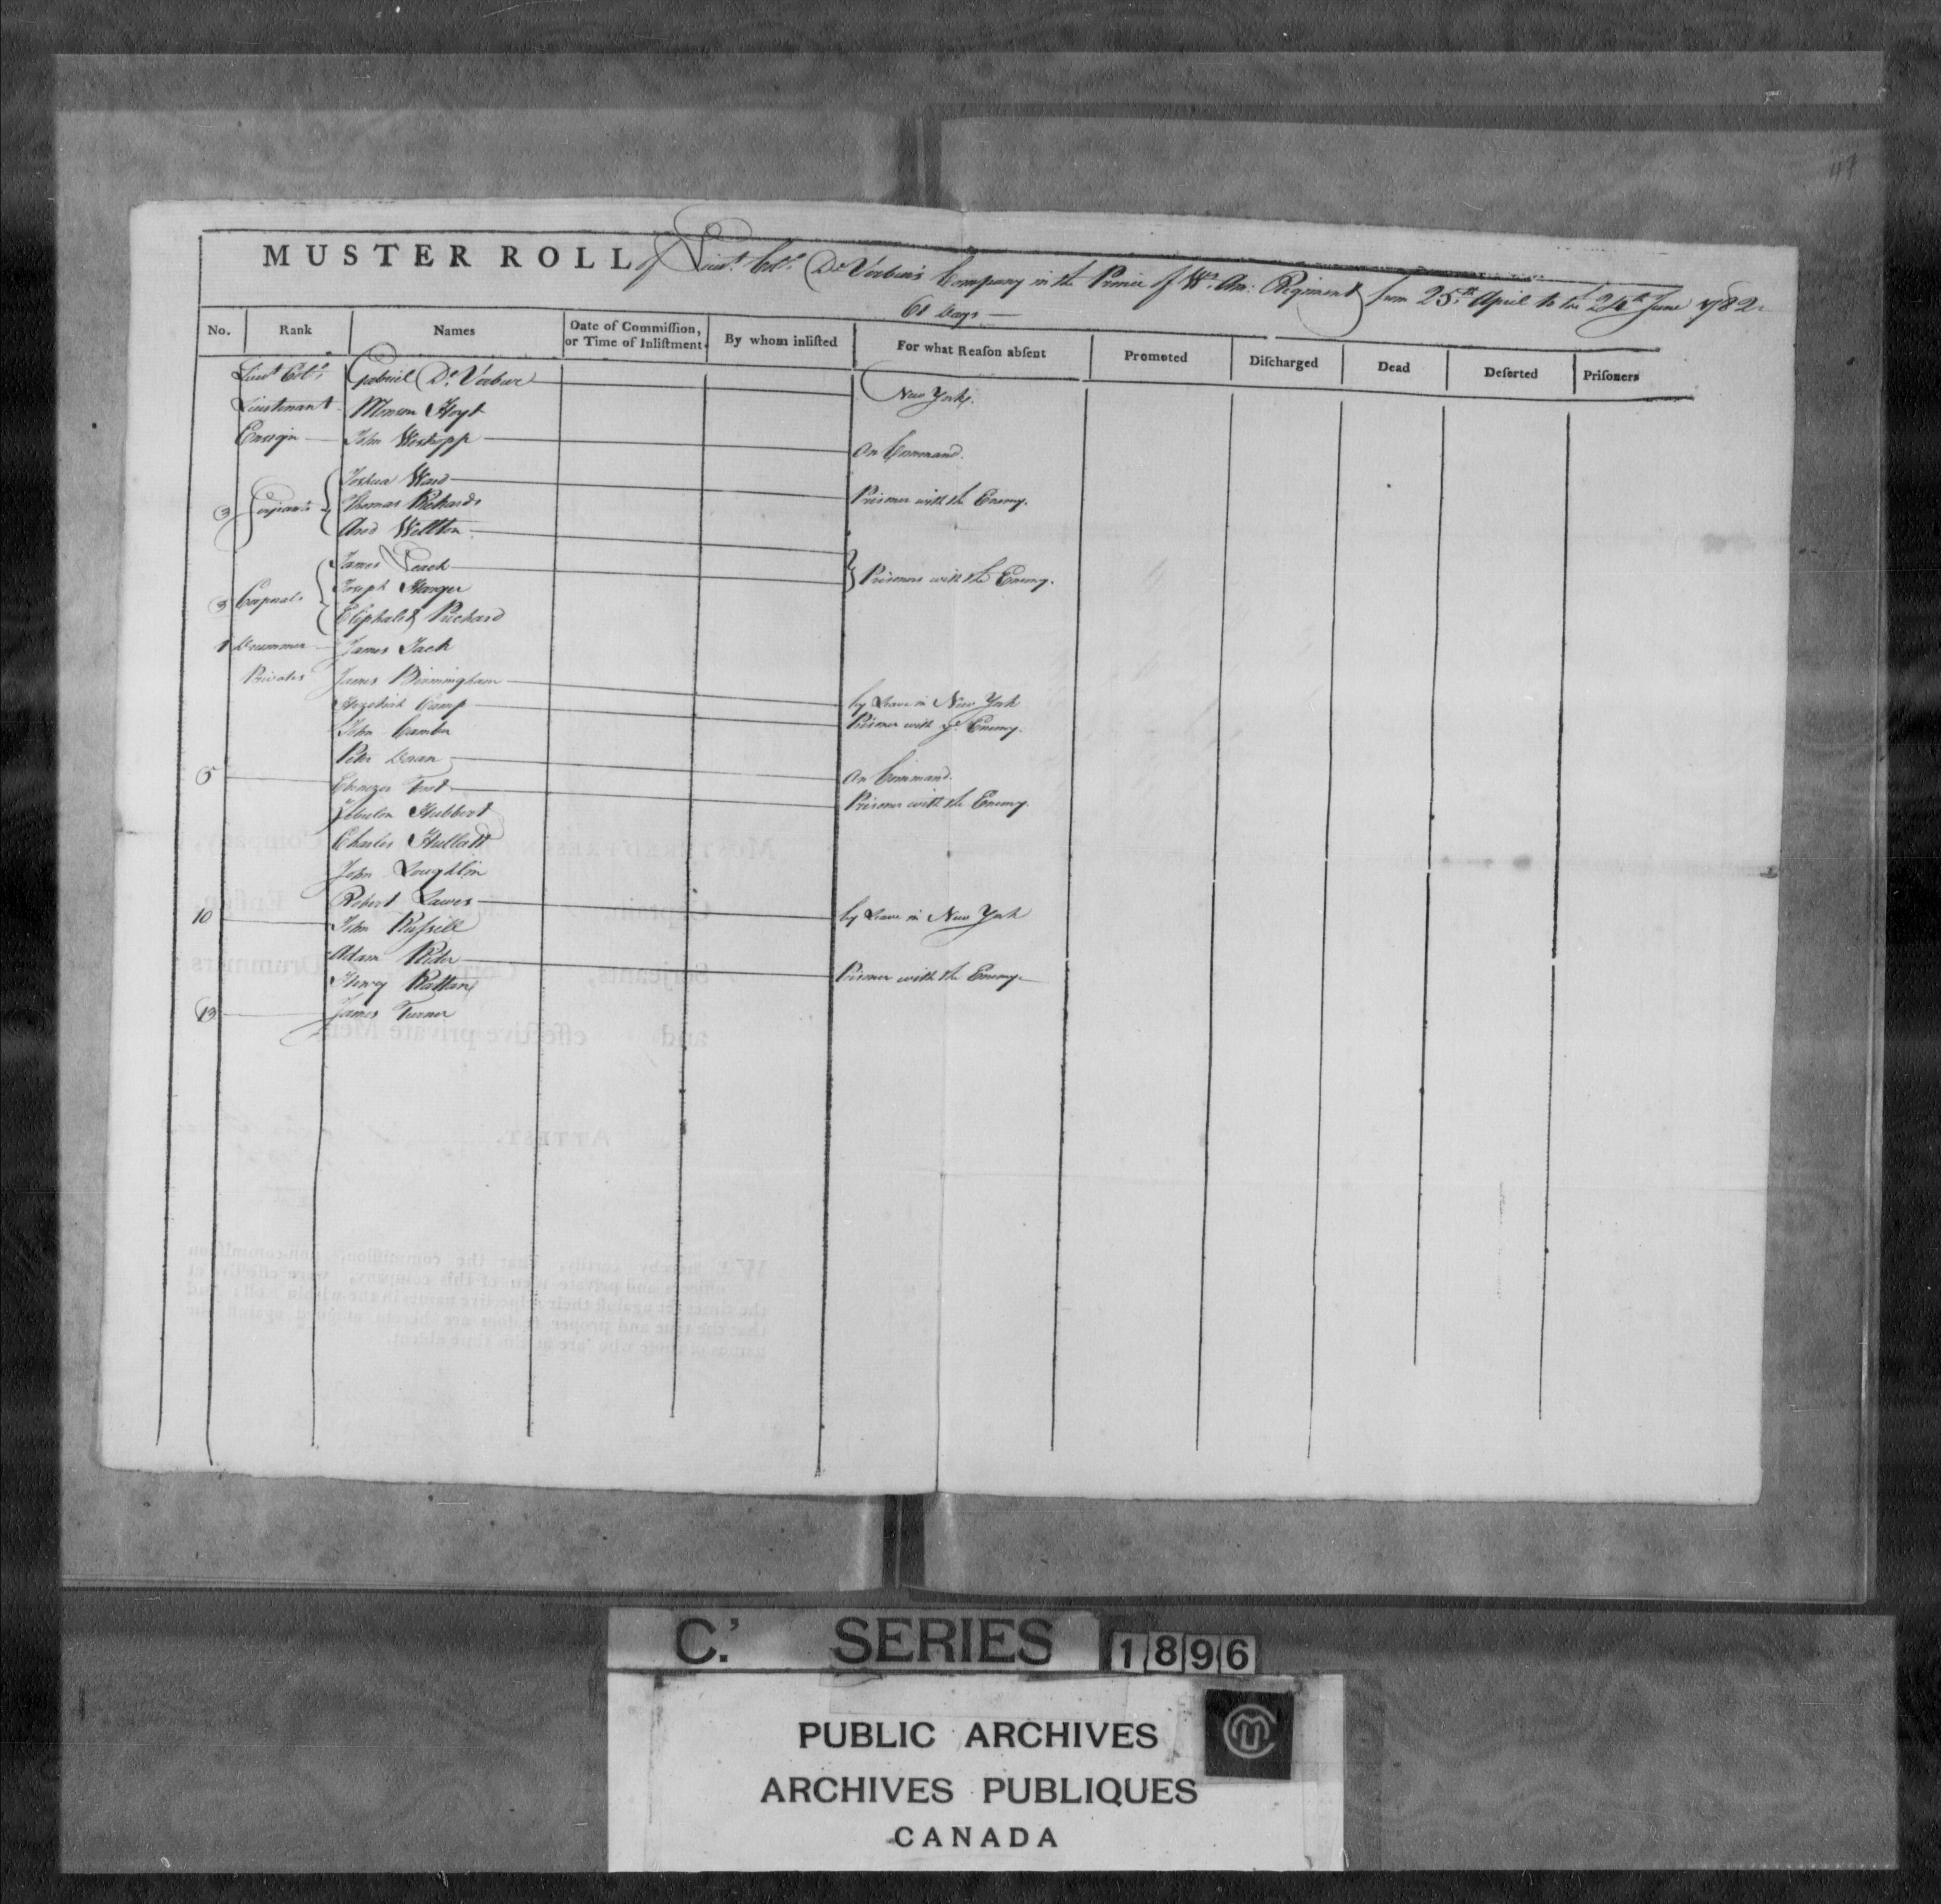 47
MUSTER ROLL of Lieut. Coll. De Veber's Company in the Prince of Ws. Am: Regiment from 25th April to the 24th June 1782.
61 Days —
No. Rank Names Date of Commiſſion, or Time of Inliſtment. By whom inliſted For what Reaſon abſent Promoted Diſcharged Dead Deſerted Priſoners
Lieut Coll. Gabriel De Veber New York.
Lieutenant Monson Hoyt
Ensign John On Command.
3 Serjeants Joshua Ward Prisoner with the Enemy.
Thomas Richards
Ard Wellton
James Leach } Prisoners with the Enemy.
3 Corporals Joseph
Eliphalet Prichard
1 Drummer James Jack
Privates James Birmingham by Leave in New York
Hezekiah Camp Prisoner with ye Enemy.
John Camber
Peter Doran On Command.
5 Ebenezer Prisoner with the Enemy.
Zebulon Hubberd
Charles
John Loughlin
Robert Lawes by Leave in New York
10 John Ruſsell
Adam Rider Prisoner with the Enemy
Henry Rattan
13 James Turner
MUSTERED PRESENT Company,
Captain, Enſign,
Serjeants, Drummers
and effective private Men.
ATTEST.
C.' SERIES 1896
PUBLIC ARCHIVES
ARCHIVES PUBLIQUES
CANADA